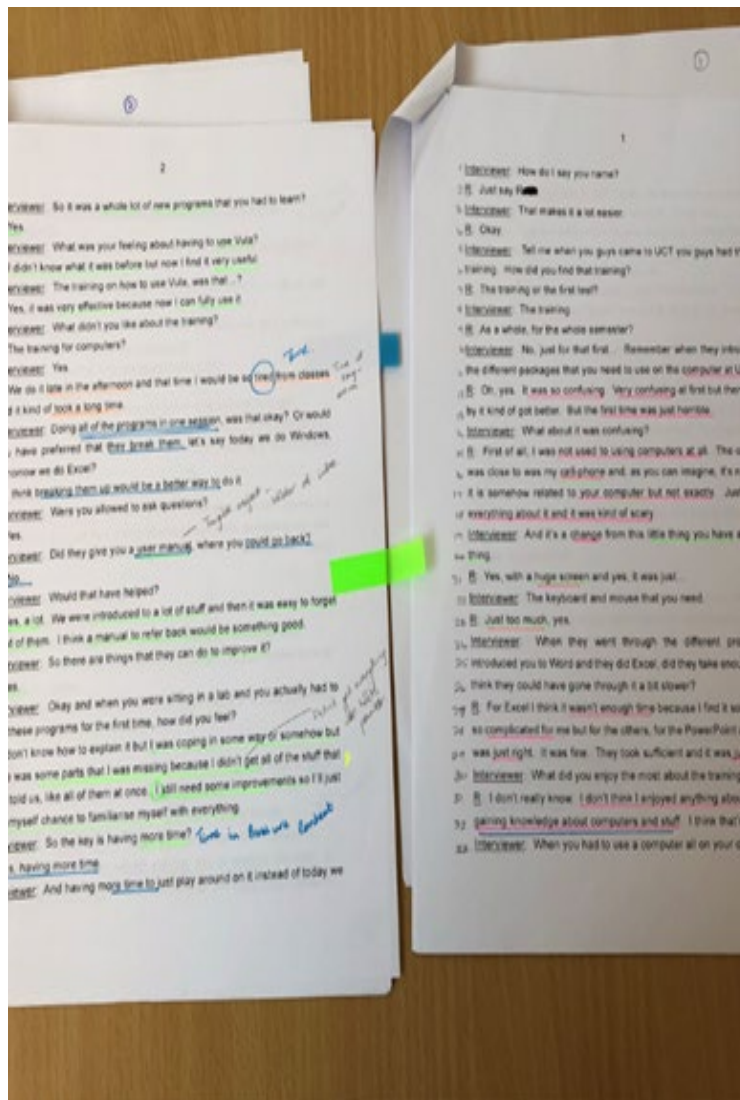 2
erviewer: So it was a whole lot of new programs that you had to learn?
Yes.
erviewer: What was your feeling about having to use Vula?
I didn't know what it was before but now I find it very useful.
erviewer: The training on how to use Vula, was that...?
Yes, it was very effective because now I can fully use it.
erviewer: What didn't you like about the training?
The training for computers?
erviewer: Yes.
We do it late in the afternoon and that time I would be so tired from classes
d it kind of took a long time.
erviewer: Doing all of the programs in one session, was that okay? Or would
have preferred that they break them, let's say today we do Windows,
orrow we do Excel?
think breaking them up would be a better way to do it.
erviewer: Were you allowed to ask questions?
es.
viewer: Did they give you a user manual, where you could go back?
No...
viewer: Would that have helped?
es, a lot. We were introduced to a lot of stuff and then it was easy to forget
t of them. I think a manual to refer back would be something good.
viewer: So there are things that they can do to improve it?
es.
viewer: Okay and when you were sitting in a lab and you actually had to
hese programs for the first time, how did you feel?
on't know how to explain it but I was coping in some way or somehow but
was some parts that I was missing because I didn't get all of the stuff that
told us, like all of them at once. I still need some improvements so I'll just
myself chance to familiarise myself with everything.
iewer: So the key is having more time? Time in
s, having more time.
iewer: And having more time to just play around on it instead of today we
Time
Time of
1
1
1 Interviewer: How do I say you name?
2 R: Just say R
3 Interviewer: That makes it a lot easier.
4 R: Okay.
5 Interviewer: Tell me when you guys came to UCT you guys had th
6 training. How did you find that training?
7 R: The training or the first test?
8 Interviewer: The training.
9 R: As a whole, for the whole semester?
10 Interviewer: No, just for that first... Remember when they intro
the different packages that you need to use on the computer at U
R: Oh, yes. It was so confusing. Very confusing at first but then
by it kind of got better. But the first time was just horrible.
Interviewer: What about it was confusing?
R: First of all, I was not used to using computers at all. The c
was close to was my cell-phone and, as you can imagine, it's n
it is somehow related to your computer but not exactly. Just
everything about it and it was kind of scary.
Interviewer: And it's a change from this little thing you have a
thing.
R: Yes, with a huge screen and yes, it was just...
Interviewer: The keyboard and mouse that you need.
R: Just too much, yes.
Interviewer: When they went through the different pro
introduced you to Word and they did Excel, did they take enou
think they could have gone through it a bit slower?
R: For Excel I think it wasn't enough time because I find it so
so complicated for me but for the others, for the PowerPoint
was just right. It was fine. They took sufficient and it was ju
Interviewer: What did you enjoy the most about the training
R: I don't really know. I don't think I enjoyed anything abou
gaining knowledge about computers and stuff. I think that
Interviewer: When you had to use a computer all on your o